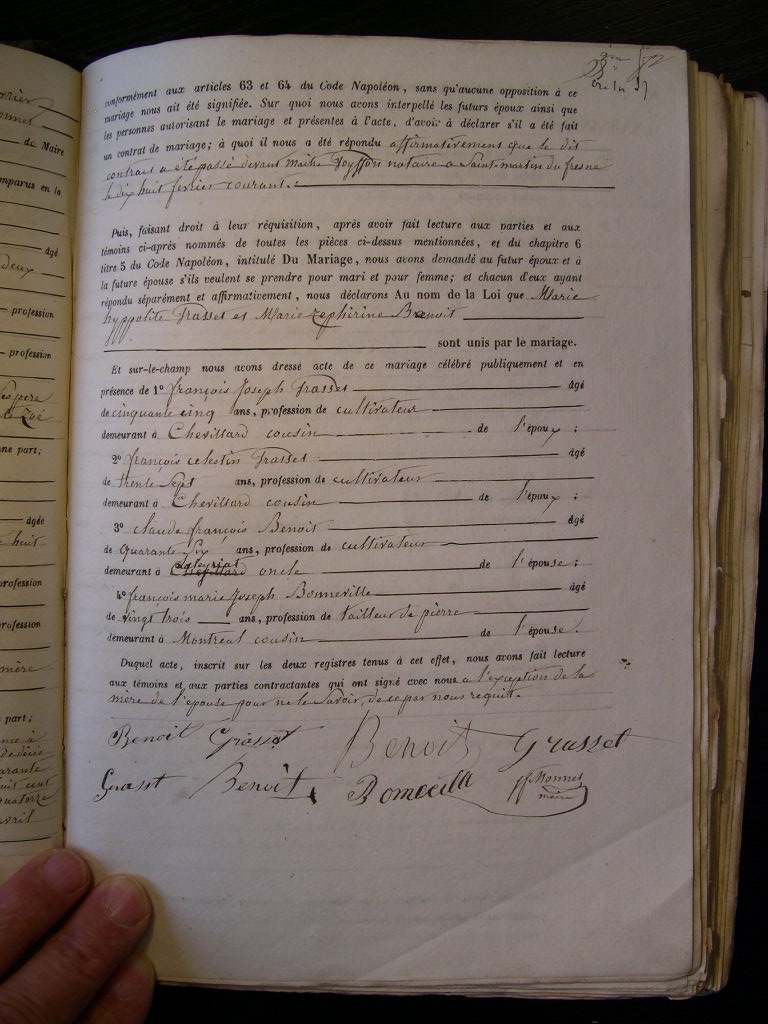 conformément aux articles 63 et 64 du Code Napoléon, sans qu'aucune opposition à ce
mariage nous ait été signifiée. Sur quoi nous avons interpellé les futurs époux ainsi que
les personnes autorisant le mariage et présentes à l'acte, d'avoir à déclarer s'il a été fait
un contrat de mariage; à quoi il nous a été répondu affirmativement que le dit
contrat a été passé devant maître notaire a Saint-martin du fresne
le dix huit fevrier courant.
Puis, faisant droit à leur réquisition, après avoir fait lecture aux parties et aux
témoins ci-après nommés de toutes les pièces ci-dessus mentionnées, et du chapitre 6
titre 5 du Code Napoléon, intitulé Du Mariage, nous avons demandé au futur époux et à
la future épouse s'ils veulent se prendre pour mari et pour femme; et chacun d'eux ayant
répondu séparément et affirmativement, nous déclarons Au nom de la Loi que Marie
hyppolite Grasset et Marie zephirine Benoit
sont unis par le mariage.
Et sur-le-champ nous avons dressé acte de ce mariage célébré publiquement et en
présence de 1º françois Joseph Grasset âgé
de cinquante cinq ans, profession de cultivateur
demeurant à Chevillard cousin de l'époux;
2º françois celestin Grasset âgé
de trente sept ans, profession de cultivateur
demeurant à Chevillard cousin de l'époux;
3º claude françois Benoit âgé
de quarante six ans, profession de cultivateur
demeurant à Chevillard oncle de l'épouse;
4º françois marie Joseph Bonneville âgé
de vingt trois ans, profession de tailleur de pierre
demeurant à Montreal cousin de l'épouse.
Duquel acte, inscrit sur les deux registres tenus à cet effet, nous avons fait lecture
aux témoins et aux parties contractantes qui ont signé avec nous a l'exception de la
mère de l'épouse pour ne le savoir, de ce par nous requit.
Benoit Grasset Benoit Grasset
Grasset Benoit Monnet
maire
de Maire
âgé
profession
profession
âgée
profession
profession
mère